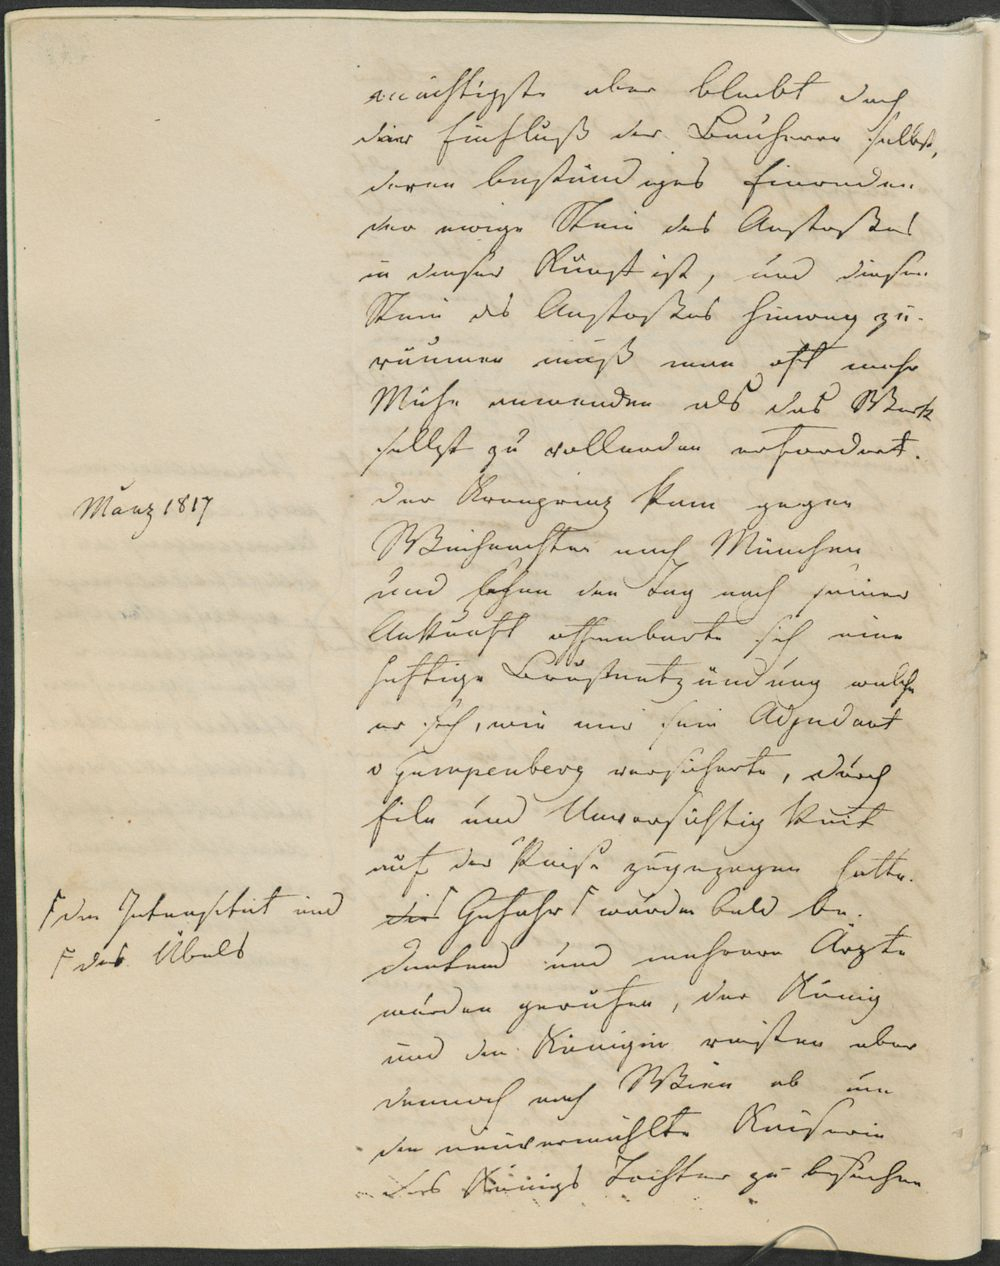 mächtigste aber bleibt doch
der Einfluß der Bauherrn selbst,
deren beständiges Einreden
der ewige Stein des Anstoßes
in dieser Kunst ist, und diesen
Stein des Anstoßes hinweg zu-
räumen muß man oft mehr
Mühe anwenden als das Werk
selbst zu vollenden erfordert.
März 1817
der Kronprinz kam gegen
Weihnachten nach München
und schon den Tag nach seiner
Ankunft offenbarte sich eine
heftige Brustentzündung welche
er sich, wie mir sein Adjudant
v Gumpenberg versicherte, durch
Eile und Unvorsichtigkeit
auf der Reise zugezogen hatte.
die Intensität und
des Übels
die Gefahr wurden bald be-
deutend und mehrere Ärzte
wurden gerufen, der König
und die Königin reisten aber
dennoch nach Wien ab um
die neuvermählte Kaiserin
des Königs Tochter zu besuchen